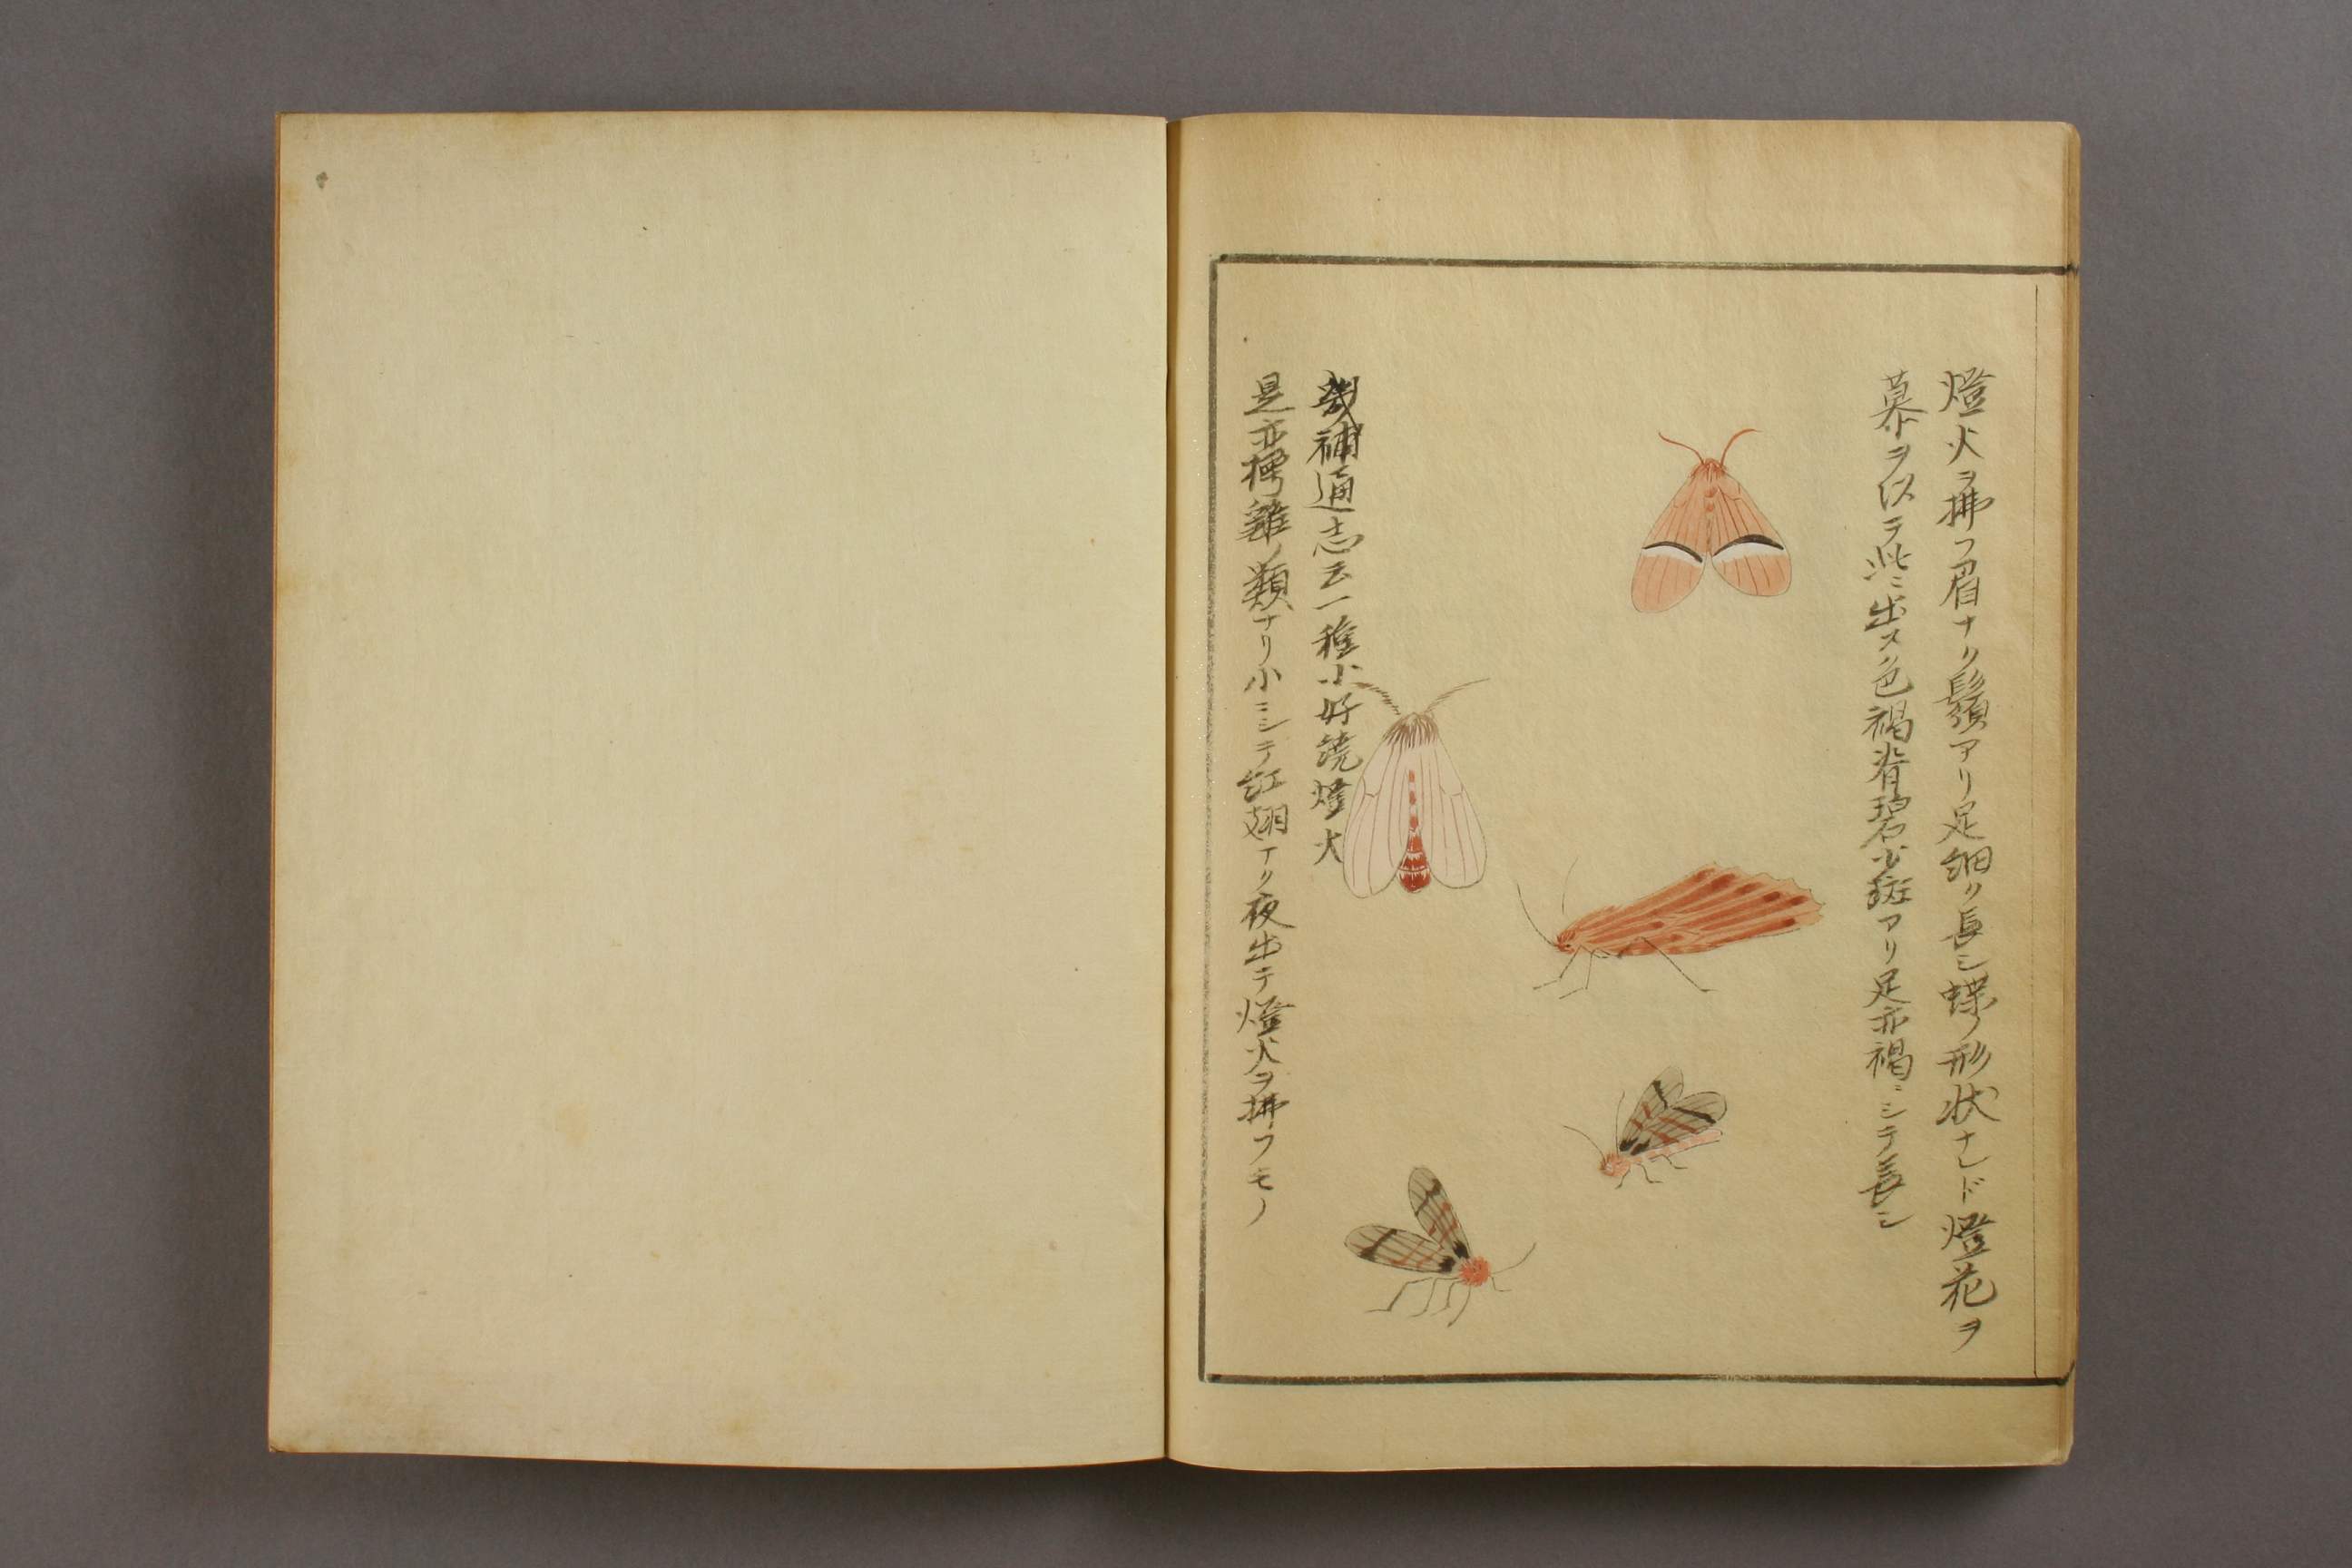 燈火ヲ拂フ眉ナク鬚アリ足細ク長シ蝶ノ形状ナレド燈花ヲ
慕ヲ以テ此ニ出ス色褐背碧少斑アリ足亦褐ニシテ長シ
畿補通志云一種小好繞燈火
是亦樗雞ノ類ナリ小ニシテ紅翅アリ夜出テ燈火ヲ拂フモノ